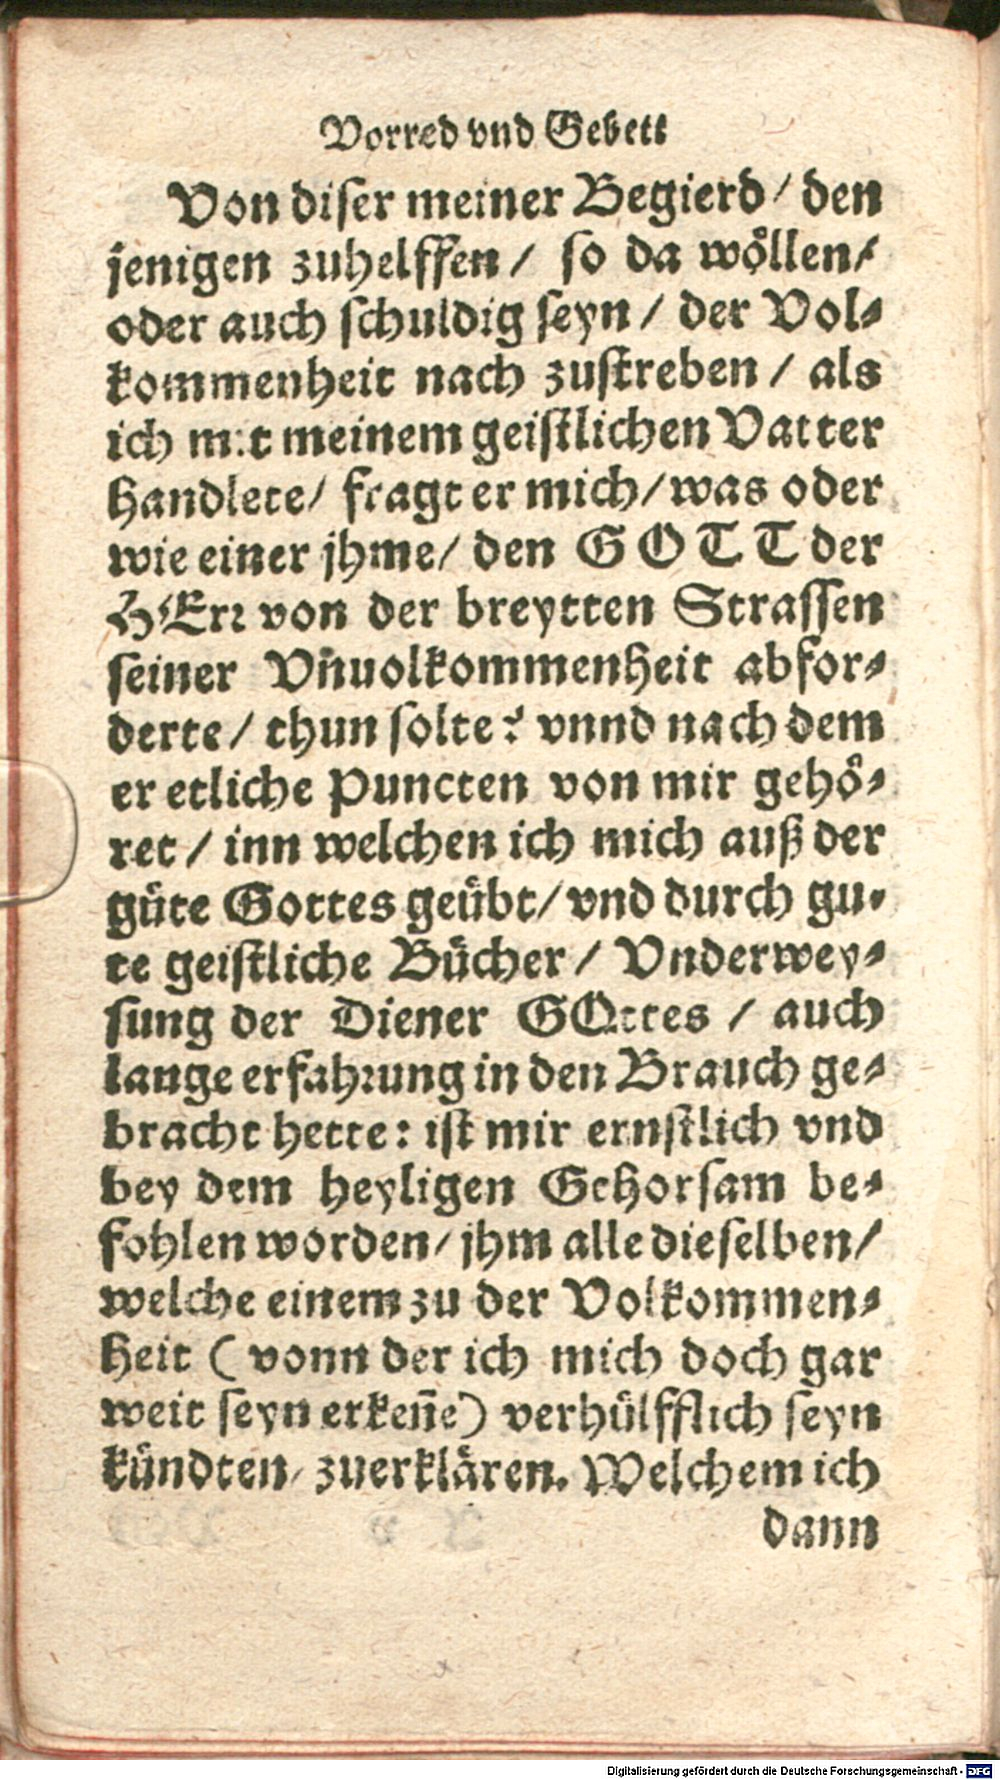 Vorred vnd Gebett
Von diser meiner Begierd / den
jenigen zuhelffen / so da wöllen /
oder auch schuldig seyn / der Vol-
kommenheit nach zustreben / als
ich mit meinem geistlichen Vatter
Handlete / fragt er mich / was oder
wie einer jhme / den GOTT der
HErr von der breytten Strassen
seiner Vñuolkommenheit abfor-
derte / thun solte? vnnd nach dem
er etliche Puncten von mir gehö-
ret / inn welchen ich mich auß der
güte Gottes geübt / vnd durch gu-
te geistliche Bücher / Vnderwey-
sung der Diener GOttes / auch
lange erfahrung in den Brauch ge-
bracht hette: ist mir ernstlich vnd
bey dem heyligen Gehorsam be-
fohlen worden / jhm alle dieselben /
welche einem zu der Volkommen-
heit ( vonn der ich mich doch gar
weit seyn erkeñe) verhülfflich seyn
kündten / zuerklären. Welchem ich
dann
Digitalisierung gefördert durch die Deutsche Forschungsgemeinschaft - DFG